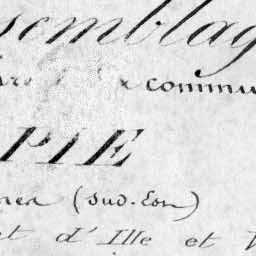 semblag
commu
PIE
(Sud-Est)
t d'Ille et V